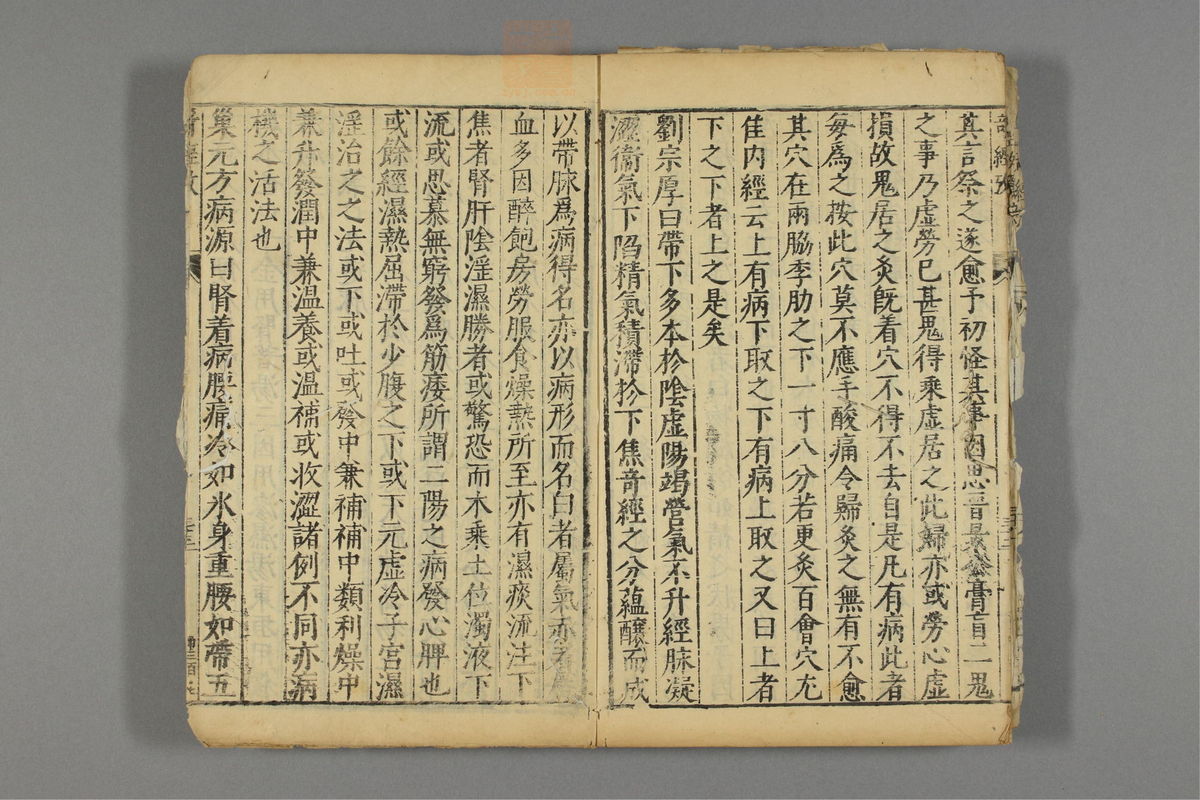 其言祭之遂愈予初怪其事因思晉景公膏肓二鬼
之事乃虛勞已甚鬼得乘虛居之此婦亦或勞心虛
損故鬼居之灸旣着穴不得不去自是凡有病此者
每爲之按此穴莫不應手酸痛令歸灸之無有不愈
其穴在兩脇季肋之下一寸八分若更灸百會穴尤
佳內經云上有病下取之下有病上取之又曰上者
下之下者上之是矣
劉宗厚曰帶下多本於陰虛陽竭營氣不升經脉凝
澀衞氣下陷精氣積滯於下焦奇經之分蘊釀而成
以帶脉爲病得名亦以病形而名白者屬氣赤者屬
血多因醉飽房勞服食燥熱所至亦有濕痰流注下
焦者腎肝陰淫濕勝者或驚恐而木乘土位濁液下
流或思慕無窮發爲筋痿所謂二陽之病發心脾也
或餘經濕熱屈滯於少腹之下或下元虛冷子宮濕
淫治之之法或下或吐或發中兼補補中類利燥中
兼升發潤中兼溫養或溫補或收澀諸例不同亦病
機之活法也
巢元方病源曰腎着病腰痛冷如氷身重腰如帶五